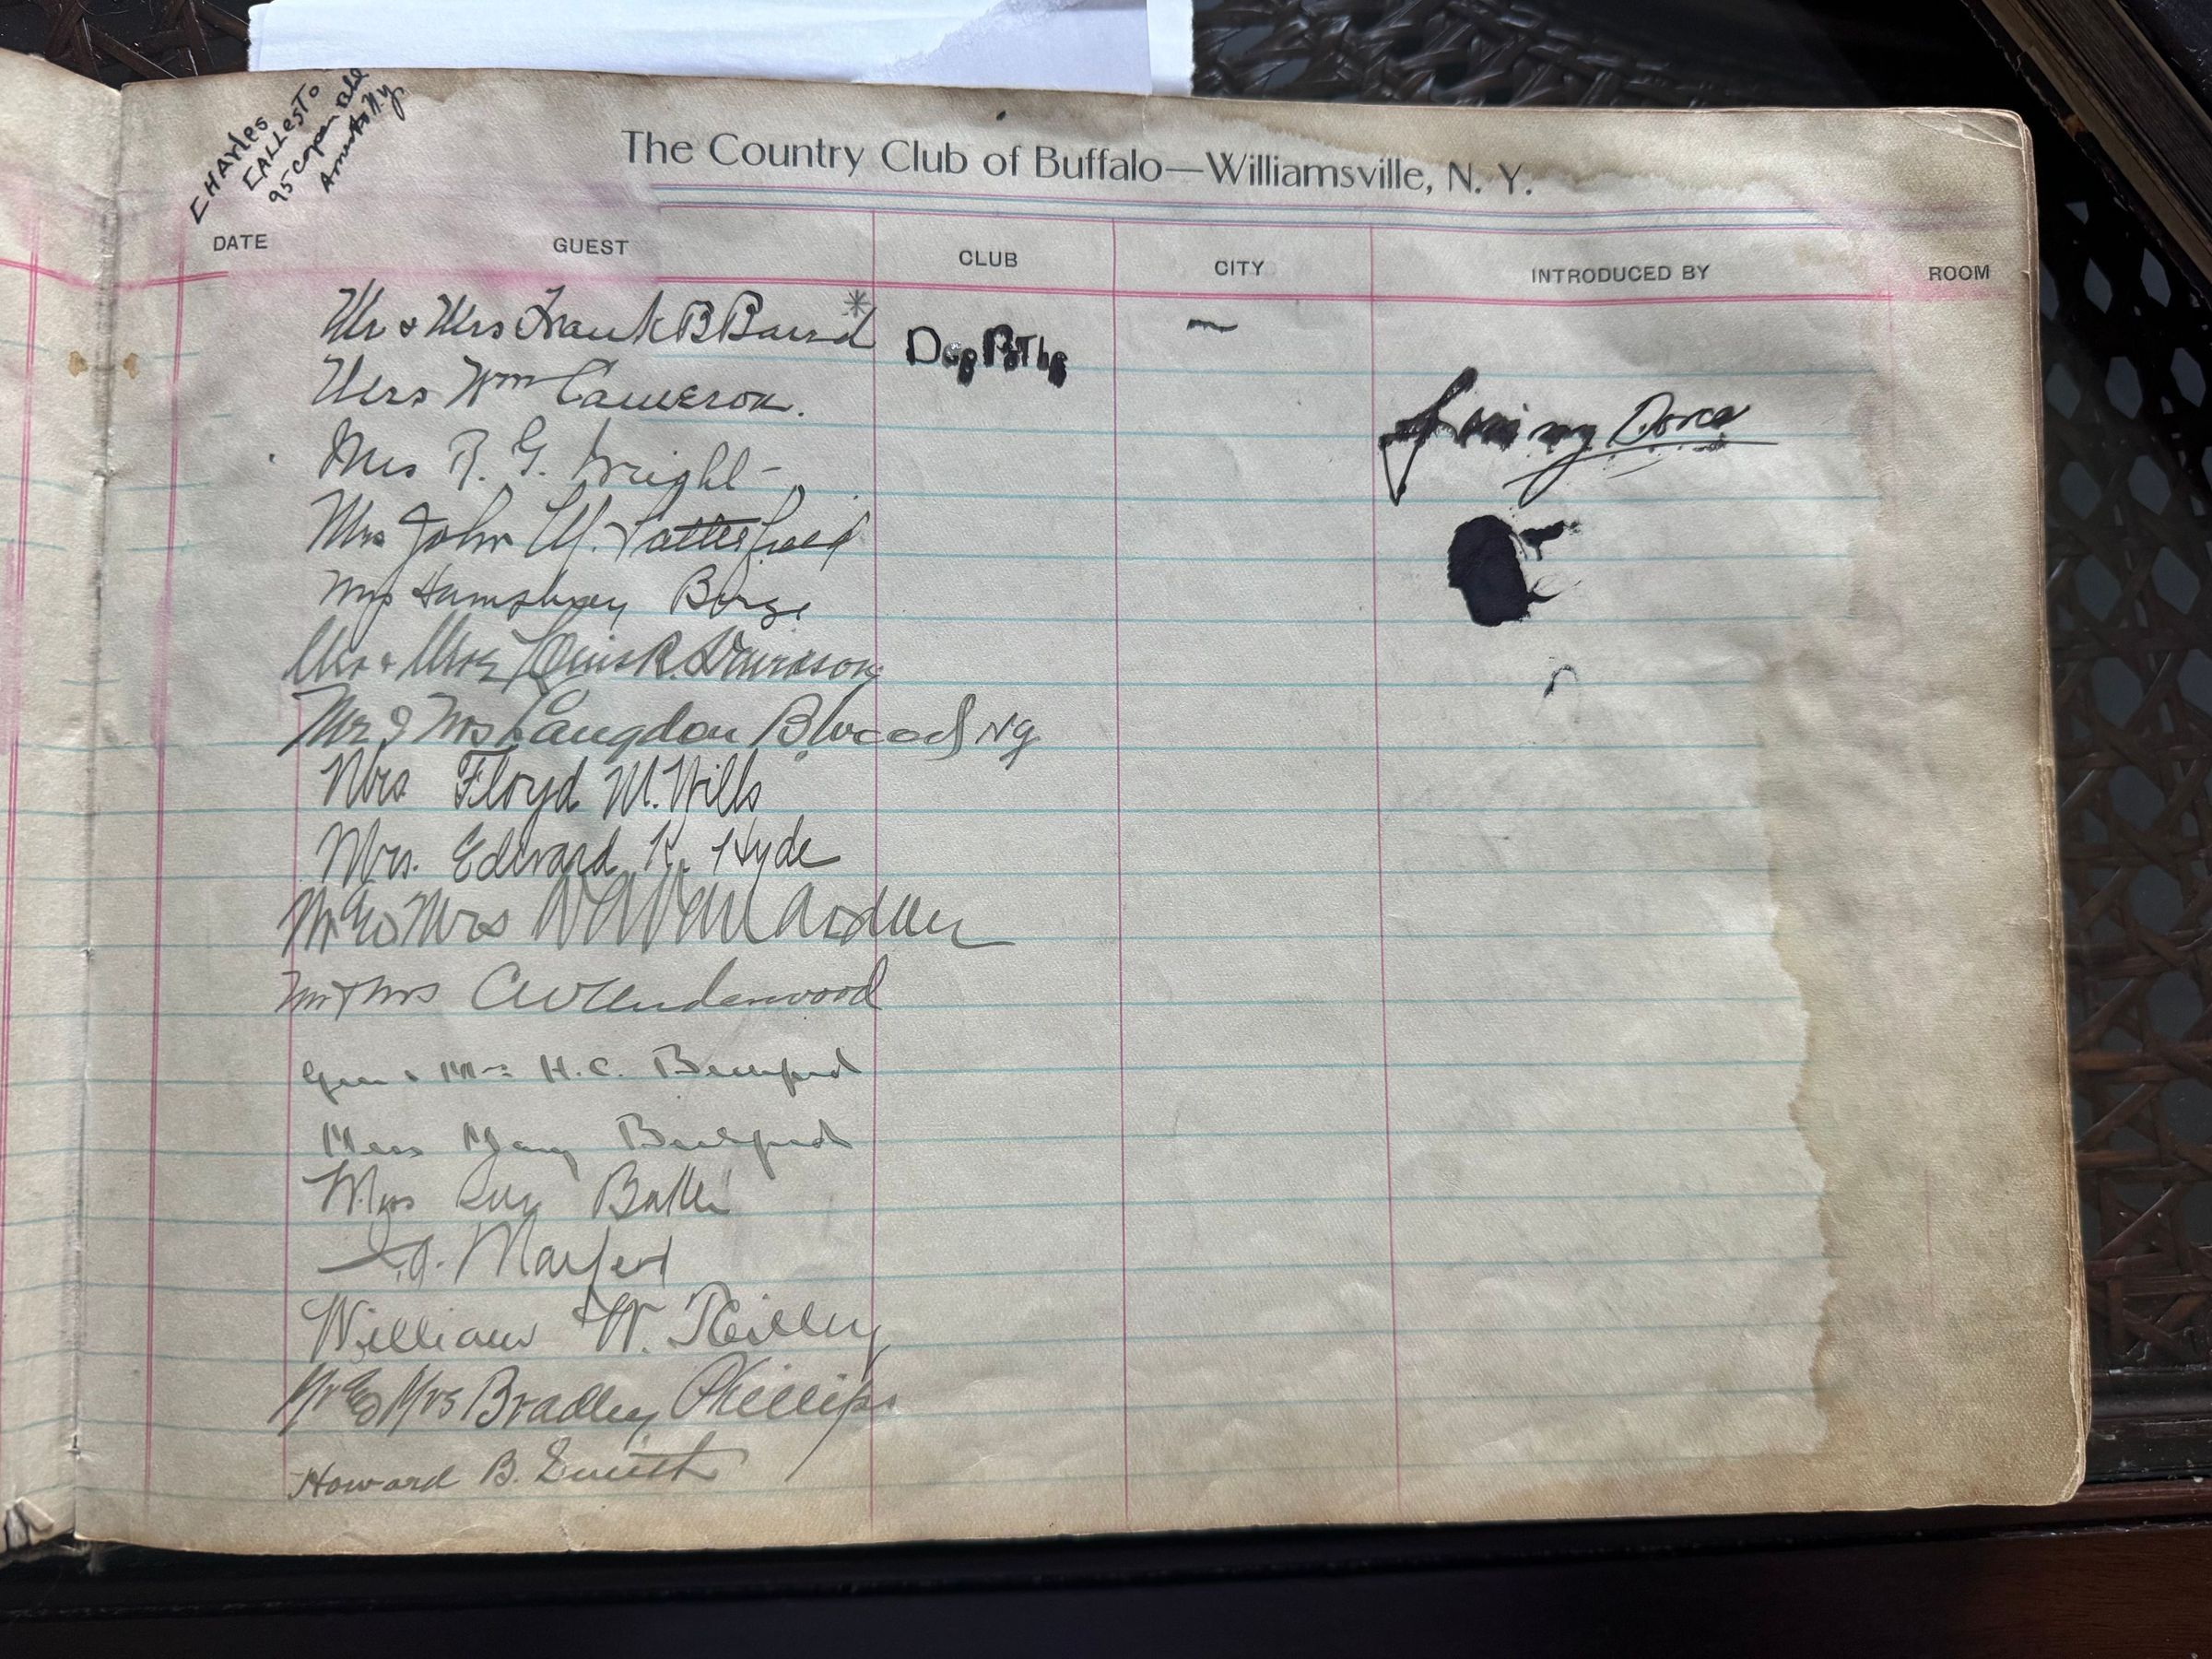 CHArles
95
The Country Club of Buffalo—Williamsville, N. Y.
DATE GUEST CLUB CITY INTRODUCED BY ROOM
Mr & Mrs Frank B Baird *
Mrs Wm Cameron.
Mrs R. G. Wright
Mrs John M. Satterfield
Mrs Humphrey Birge
Mr & Mrs Louis R. Davidson
Mr & Mrs Langdon B Wood
Mrs Floyd M. Mills
Mrs. Edward K. Hyde
Mr & Mrs
Mr & Mrs CW Underwood
Gen & Mrs H. C. Bickford
Miss Mary Bickford
Mrs
William W. Reilley
Mr & Mrs Bradley Phillips
Howard B. Smith